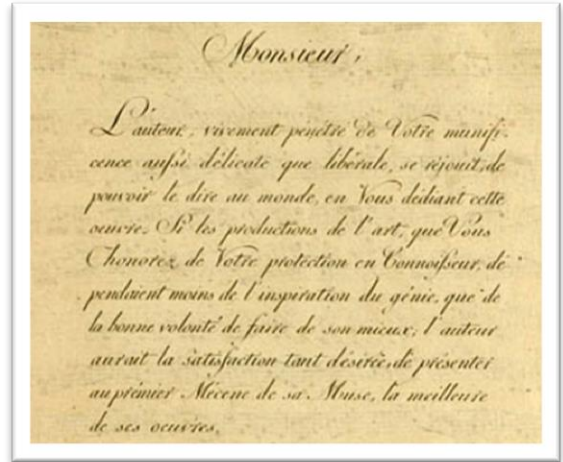 Monsieur,
L'auteur, vivement pénétré de Votre munifi-
cence aussi délicate que libérale, se réjouit, de
pouvoir le dire au monde, en Vous dédiant cette
oeuvre. Si les productions de l'art, que Vous
honorez de Votre protection en Connoisseur, dé-
pendaient moins de l'inspiration du génie, que de
la bonne volonté de faire de son mieux; l'auteur
aurait la satisfaction tant désirée, de présenter
au prémier Mécène de sa Muse, la meilleure
de ses oeuvres.